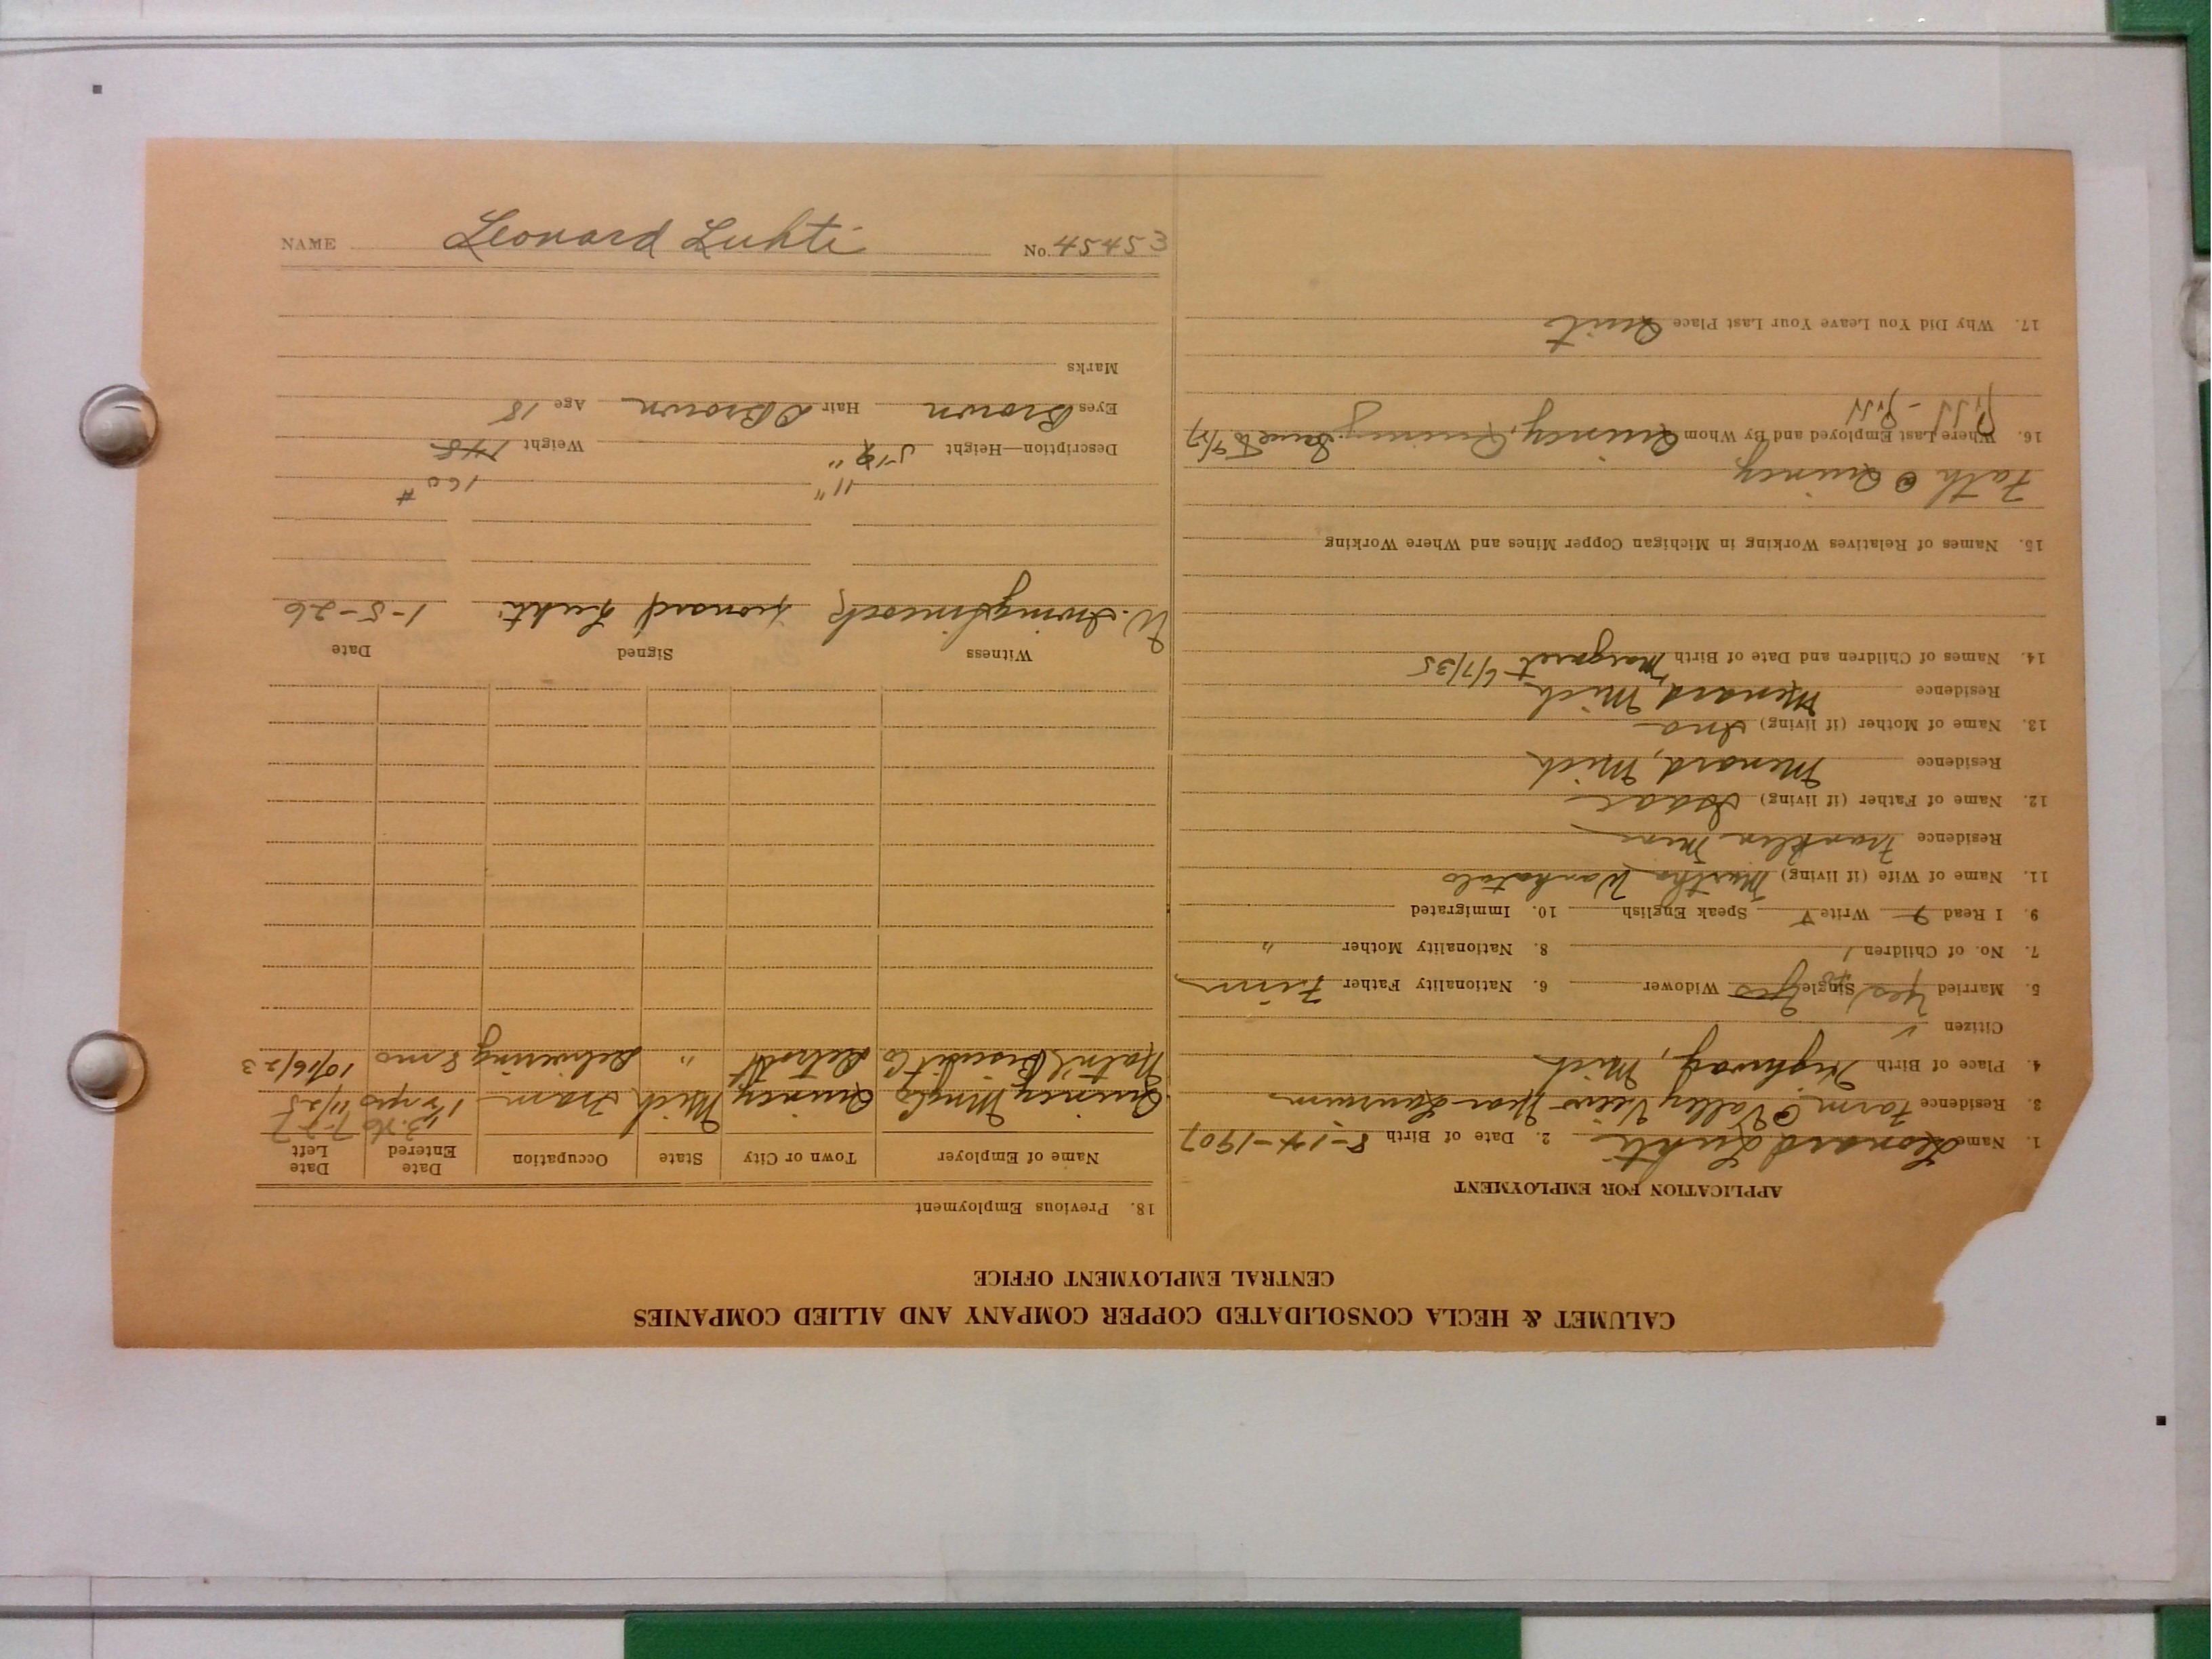 NAME Leonard Luhti No. 45453
CALUMET & HECLA CONSOLIDATED COPPER COMPANY AND ALLIED COMPANIES
CENTRAL EMPLOYMENT OFFICE
APPLICATION FOR EMPLOYMENT
1. Name Leonard Luhti 2. Date of Birth 8-14-1907
3. Residence Farm @ Valley View Near Laurium
4. Place of Birth Highway, Mich
Citizen
5. Married Yes Single Yes Widower 6. Nationality Father Finn
7. No. of Children 1 8. Nationality Mother "
9. I Read Write Speak English 10. Immigrated
11. Name of Wife (if living) Martha
Residence Franklin Mine
12. Name of Father (if living) Isaac
Residence Menard, Mich
13. Name of Mother (if living) Ina
Residence Menard, Mich
14. Names of Children and Date of Birth Margaret 6/7/35
15. Names of Relatives Working in Michigan Copper Mines and Where Working
Fath @ Quincy
16. Where Last Employed and By Whom Quincy, Quincy
17. Why Did You Leave Your Last Place Quit
18. Previous Employment
Name of Employer Town or City State Occupation Date Entered Date Left
Quincy Mng Co Quincy Mich Tram 1½ yrs 11/25
Nat'l Biscuit Co Detroit " Delivering 8 mo 10/16/23
Witness Signed Date
W. Leonard Luhti 1-5-26
11" 160 #
Description—Height 5-9" Weight 148
Eyes Brown Hair D Brown Age 18
Marks